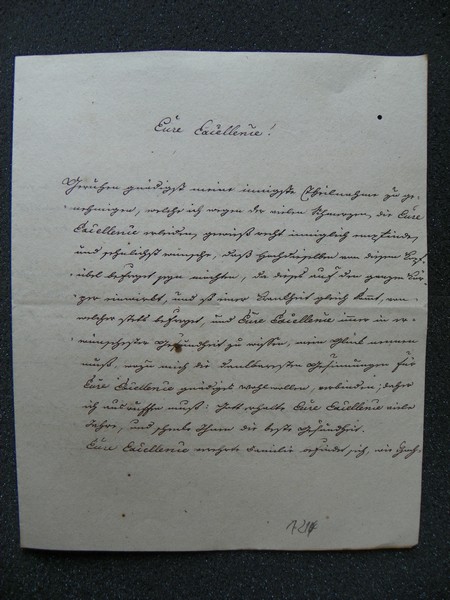 Eure Excellence!
Geruhen gnädigst meine innigste Theilnahme zu ge-
nehmigen, welche ich wegen der vielen Schmerzen, die Eure
Excellence erleiden, gewiß recht inniglich empfinde,
und sehnlichst wünsche, daß Hochdieselben von diesem
übel befreyet seyn möchten, da dieses auf den ganzen Kör-
per einwirkt, und ist einer Krankheit gleich kömt, von
welcher stets befreyet, und Eure Excellence imer in er-
wünschester Gesundheit zu wissen, mein Glück nennen
muß, wozu mich die dankbarsten Gesinnungen für
Eure Excellence gnädiges Wohlwollen, verbinden; daher
ich ausruffen muß: Gott erhalte Eure Excellence viele
Jahre, und schenke Ihnen die beste Gesundheit.
Eure Excellence verehrte Familie befindet sich, wie Hoch-